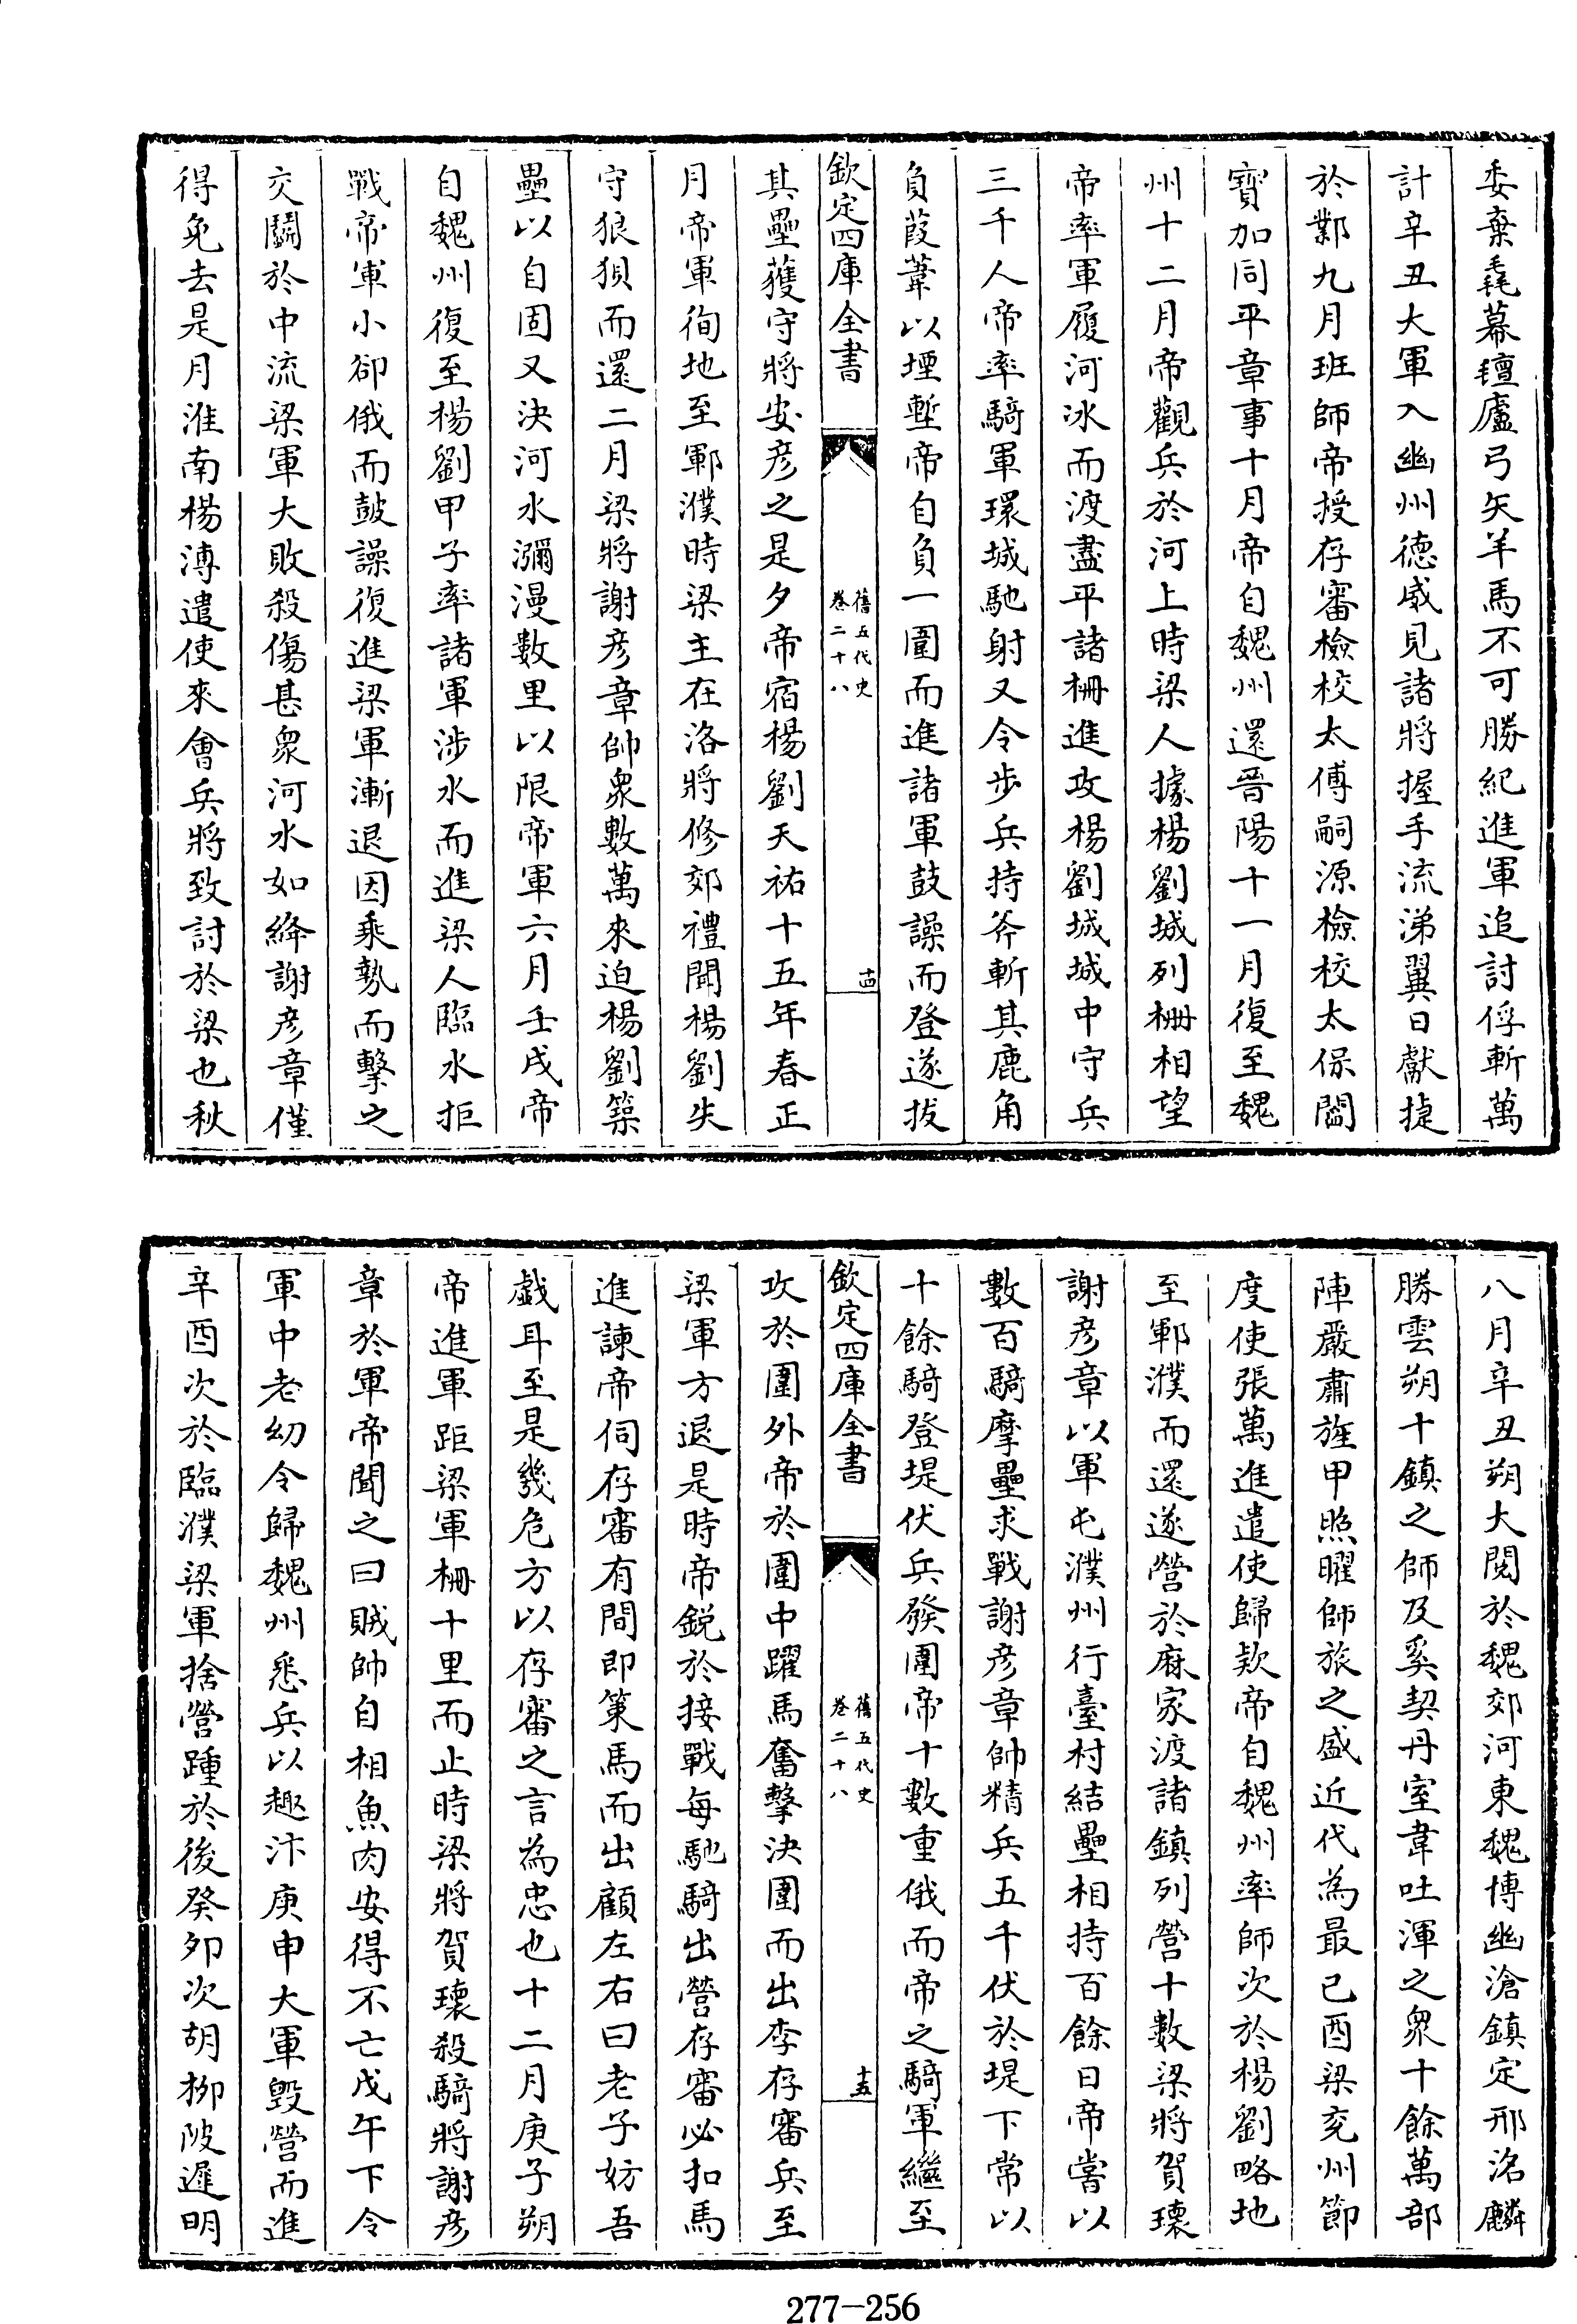 委棄毳幕氊廬弓矢羊馬不可勝紀進軍追討俘斬萬
計辛丑大軍入幽州德威見諸將握手流涕翼日獻捷
於鄴九月班師帝授存審檢校太傅嗣源檢校太保閻
寶加同平章事十月帝自魏州還晉陽十一月復至魏
州十二月帝觀兵於河上時梁人據楊劉城列柵相望
帝率軍履河冰而渡盡平諸柵進攻楊劉城城中守兵
三千人帝率騎軍環城馳射又令步兵持斧斬其鹿角
負葭葦以堙塹帝自負一圍而進諸軍鼓譟而登遂拔
欽定四庫全書
舊五代史
卷二十八
十四
其壘獲守將安彥之是夕帝宿楊劉天祐十五年春正
月帝軍徇地至鄆濮時梁主在洛將修郊禮聞楊劉失
守狼狽而還二月梁將謝彥章帥衆數萬來迫楊劉築
壘以自固又決河水瀰漫數里以限帝軍六月壬戌帝
自魏州復至楊劉甲子率諸軍涉水而進梁人臨水拒
戰帝軍小卻俄而鼓譟復進梁軍漸退因乘勢而擊之
交鬭於中流梁軍大敗殺傷甚衆河水如絳謝彥章僅
得免去是月淮南楊溥遣使來會兵將致討於梁也秋
八月辛丑朔大閱於魏郊河東魏博幽滄鎮定邢洺麟
勝雲朔十鎮之師及奚契丹室韋吐渾之衆十餘萬部
陣嚴肅旌甲照曜師旅之盛近代為最己酉梁兗州節
度使張萬進遣使歸款帝自魏州率師次於楊劉略地
至鄆濮而還遂營於麻家渡諸鎮列營十數梁將賀瓌
謝彥章以軍屯濮州行臺村結壘相持百餘日帝嘗以
數百騎摩壘求戰謝彥章帥精兵五千伏於堤下帝以
十餘騎登堤伏兵發圍帝十數重俄而帝之騎軍繼至
欽定四庫全書
舊五代史
卷二十八
十五
攻於圍外帝於圍中躍馬奮擊決圍而出李存審兵至
梁軍方退是時帝銳於接戰每馳騎出營存審必扣馬
進諫帝伺存審有間即策馬而出顧左右曰老子妨吾
戲耳至是幾危方以存審之言為忠也十二月庚子朔
帝進軍距梁軍柵十里而止時梁將賀瓌殺騎將謝彥
章於軍帝聞之曰賊帥自相魚肉安得不亡戊午下令
軍中老幼令歸魏州悉兵以趣汴庚申大軍毀營而進
辛酉次於臨濮梁軍捨營踵於後癸夘次胡柳陂遲明
277-256